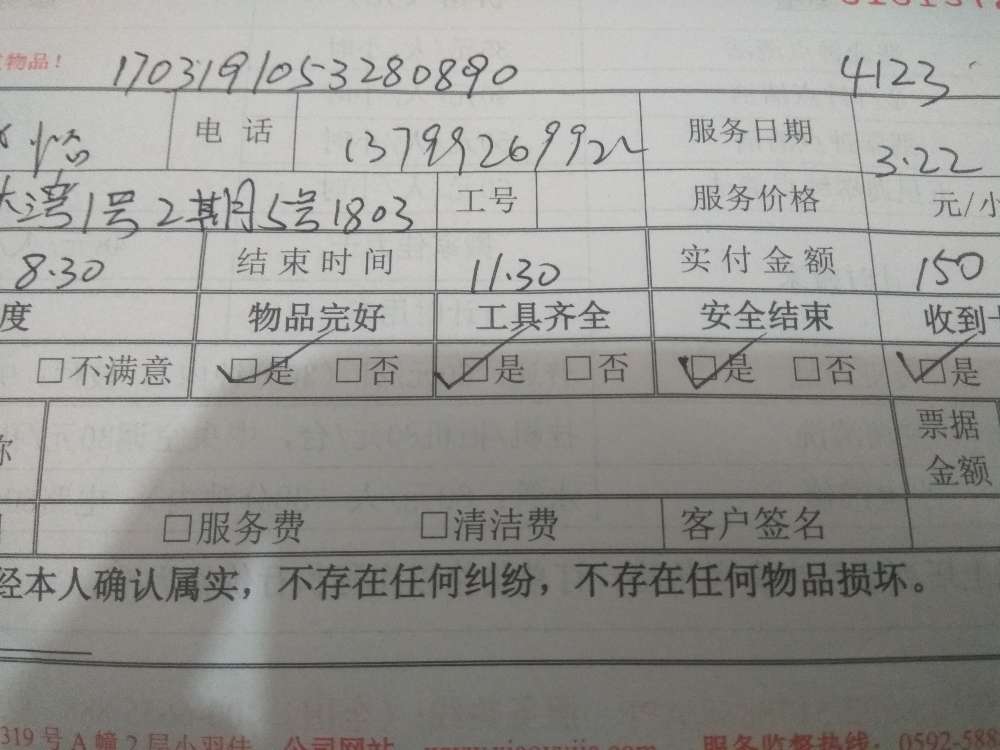 物品！ 17031910533280890 4123
怡 电话 13799269922 服务日期 3.22
大湾1号2期月5号1803 工号 服务价格 元/小
8.30 结束时间 11.30 实付金额 150
度 物品完好 工具齐全 安全结束 收到
□不满意 □是 □否 □是 □否 □是 □否 □是
称 票据
金额
□服务费 □清洁费 客户签名
经本人确认属实，不存在任何纠纷，不存在任何物品损坏。
319号A幢2层小羽佳 公司网站 www.xiaoyujia.com 服务监督热线：0592-588